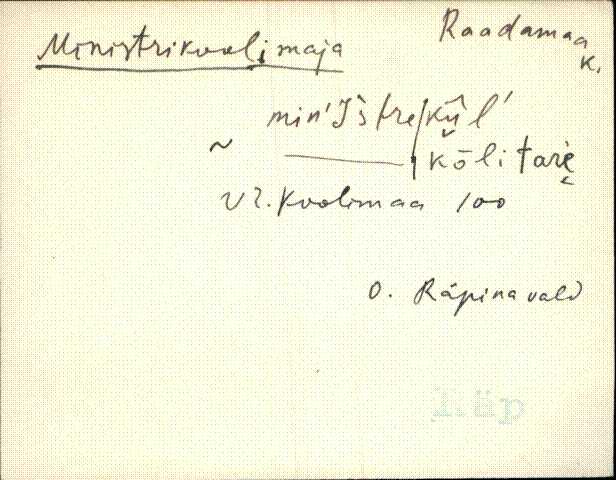 Ministrikooli maja
Raadamaa
k.
min'Istre|kũl'
~ ——— | kōli tarè
Vr. Koolimaa 100
O. Räpina vald
Räp